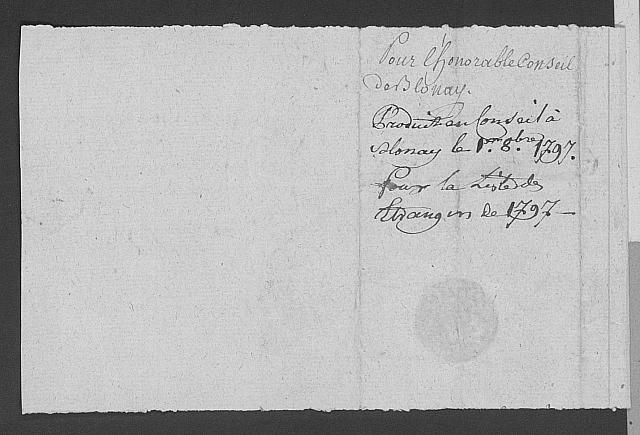 Pour l'honorable Conseil
De Blonay.
Produit en Conseil à
Blonay le 1.r 8.bre 1797.
pour la Liste des
Etrangers de 1797 —